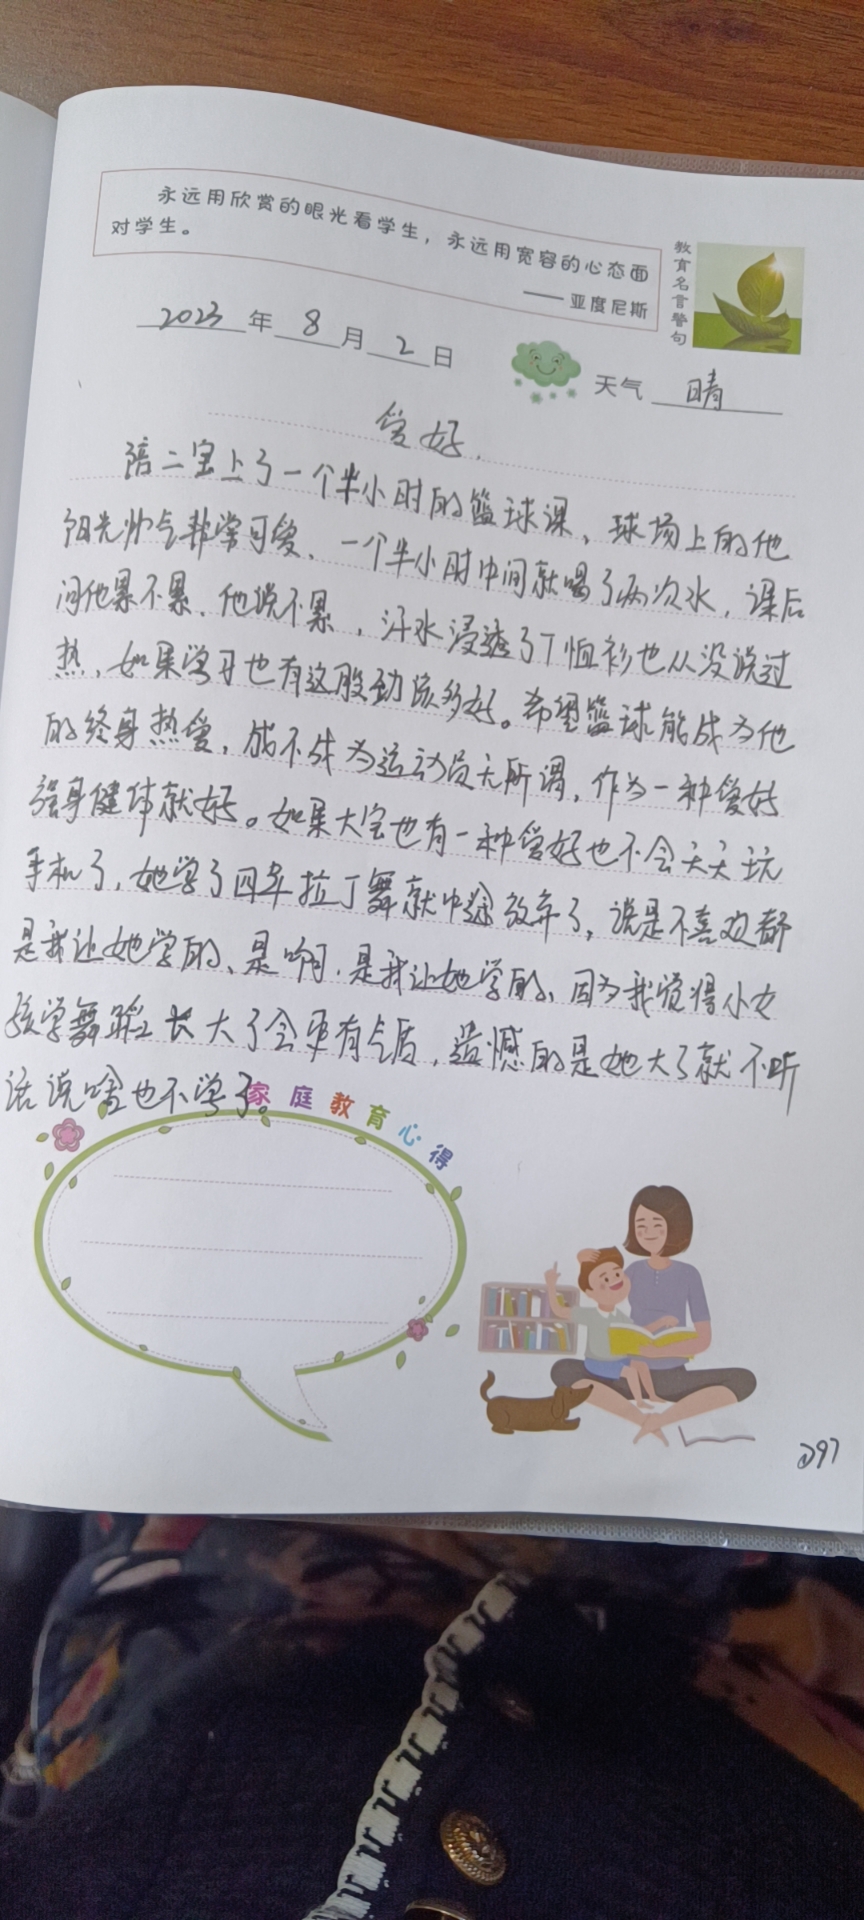 永远用欣赏的眼光看学生，永远用宽容的心态面
对学生。
——亚度尼斯
教育名言警句
2023年8月2日
天气 晴
爱好.
陪二宝上了一个半小时的篮球课、球场上的他
阳光帅气非常可爱、一个半小时中间就喝了两次水，课后
问他累不累、他说不累，汗水浸透了T恤衫也从没说过
热，如果学习也有这股劲该多好。希望篮球能成为他
的终身热爱，成不成为运动员无所谓，作为一种爱好
强身健体就好。如果大宝也有一种爱好也不会天天玩
手机了，她学了四年拉丁舞就中途放弃了，说是不喜欢都
是我让她学的、是啊、是我让她学的、因为我觉得小女
孩学舞蹈长大了会更有气质，遗憾的是她大了就不听
话说啥也不学了。
家庭教育心得
297